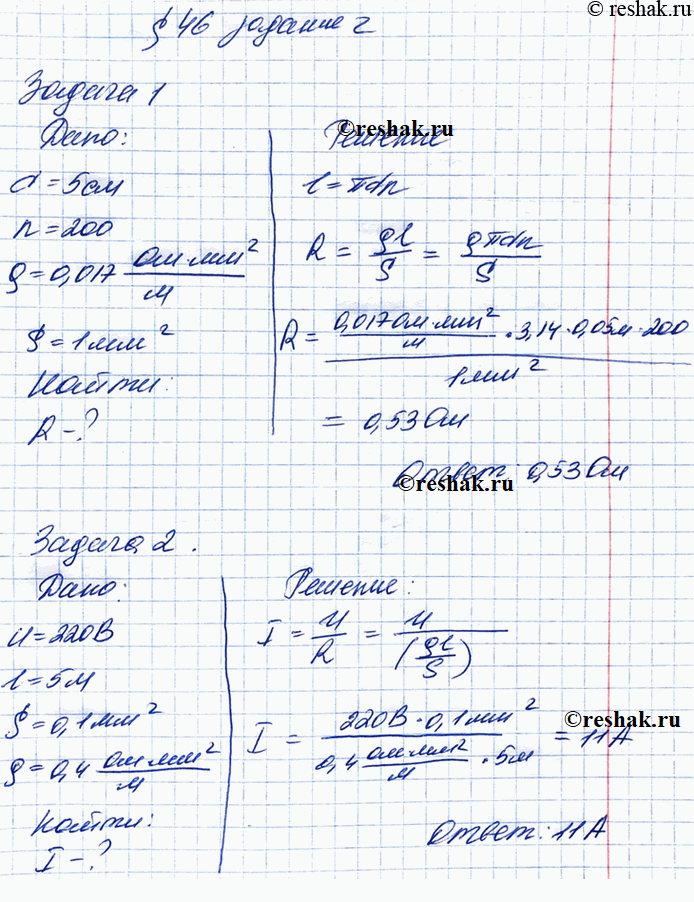 © reshak.ru
§ 46 задание 2
Задача 1
Дано:
d = 5см
n = 200
ρ = 0,017 Ом·мм²/м
S = 1мм²
Найти:
R - ?
©reshak.ru
Решение
l = πdn
R = ρl/S = ρπdn/S
R = 0,017 Ом·мм²/м · 3,14 · 0,05м · 200 / 1мм²
= 0,53 Ом
Ответ: 0,53 Ом
©reshak.ru
Задача 2.
Дано:
U = 220В
l = 5м
S = 0,1мм²
ρ = 0,4 Ом·мм²/м
Найти:
I - ?
Решение:
I = U/R = U/(ρl/S)
I = 220В · 0,1мм² / 0,4 Ом·мм²/м · 5м = 11А
©reshak.ru
Ответ: 11А